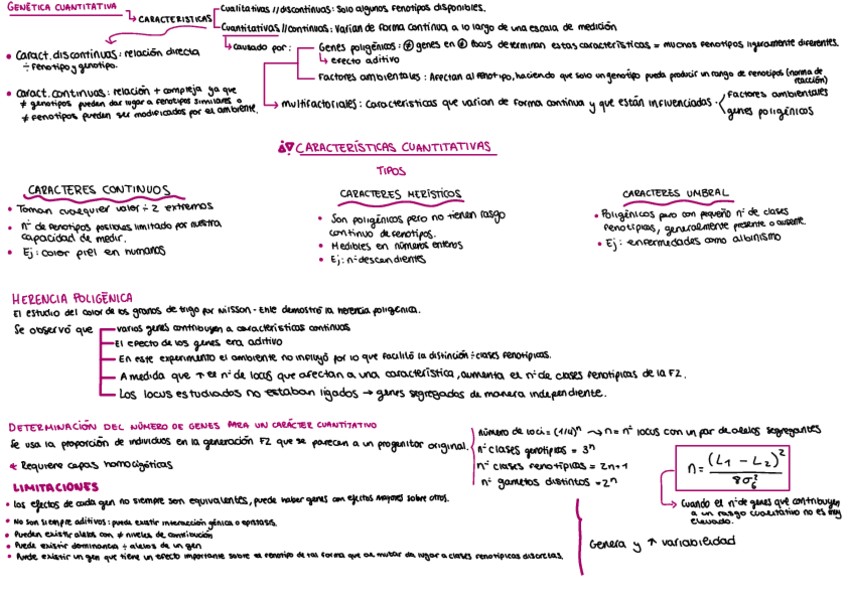 GENÉTICA CUANTITATIVA
CARACTERISTICAS
Cualitativas // discontinuas: Solo algunos fenotipos disponibles.
Cuantitativas // continuas: Varían de forma continua a lo largo de una escala de medición
causado por:
Genes poligénicos: ≠ genes en ≠ locus determinan estas características = muchos fenotipos ligeramente diferentes.
efecto aditivo
Factores ambientales: Afectan al fenotipo, haciendo que solo un genotipo pueda producir un rango de fenotipos (norma de reacción)
multifactoriales: Características que varían de forma continua y que están influenciadas.
Factores ambientales
genes poligénicos
• Caract. discontinuas: relación directa
÷ fenotipo y genotipo.
• Caract. continuas: relación + compleja ya que
≠ genotipos pueden dar lugar a fenotipos similares o
≠ fenotipos pueden ser modificados por el ambiente.
CARACTERÍSTICAS CUANTITATIVAS
TIPOS
CARACTERES CONTINUOS
• Toman cualquier valor ÷ 2 extremos
• nº de fenotipos posibles limitado por nuestra
capacidad de medir.
• Ej: color piel en humanos
CARACTERES MERÍSTICOS
• Son poligénicos pero no tienen rasgo
continuo de fenotipos.
• Medibles en números enteros
• Ej: nº descendientes
CARACTERES UMBRAL
• Poligénicos pero con pequeño nº de clases
fenotípicas, generalmente presente o ausente.
• Ej: enfermedades como albinismo
HERENCIA POLIGÉNICA
El estudio del color de los granos de trigo por Nilsson-Ehle demostró la herencia poligénica.
Se observó que
varios genes contribuyen a características continuas
El efecto de los genes era aditivo
En este experimento el ambiente no influyó por lo que facilitó la distinción ÷ clases fenotípicas.
A medida que ↑ el nº de locus que afectan a una característica, aumenta el nº de clases fenotípicas de la F2.
Los locus estudiados no estaban ligados → genes segregados de manera independiente.
DETERMINACIÓN DEL NÚMERO DE GENES PARA UN CARÁCTER CUANTITATIVO
Se usa la proporción de individuos en la generación F2 que se parecen a un progenitor original.
* Requiere cepas homocigóticas
número de loci = (1/4)ⁿ → n = nº locus con un par de alelos segregantes
nº clases genotípicas = 3ⁿ
nº clases fenotípicas = 2n+1
nº gametos distintos = 2ⁿ
n = (L1 - L2)² / 8σ²G
Cuando el nº de genes que contribuyen
a un rasgo cualitativo no es muy
elevado.
LIMITACIONES
• Los efectos de cada gen no siempre son equivalentes, puede haber genes con efectos mayores sobre otros.
• No son siempre aditivos: pueda existir interacción génica o epistasis.
• Pueden existir alelos con ≠ niveles de contribución
• Puede existir dominancia ÷ alelos de un gen
• Puede existir un gen que tiene un efecto importante sobre el fenotipo de tal forma que al mutar da lugar a clases fenotípicas discretas.
Genera y ↑ variabilidad